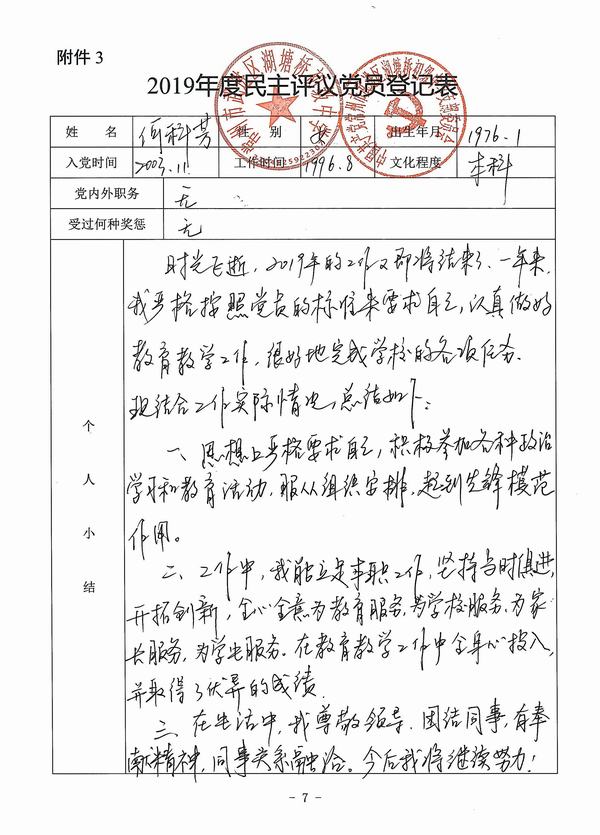 附件 3
2019年度民主评议党员登记表
姓 名 何科芳 性 别 女 出生年月 1976.1
入党时间 2003.11 工作时间 1996.8 文化程度 本科
党内外职务 无
受过何种奖惩 无
个人小结
时光飞逝，2019年的工作又即将结束了、一年来，
我严格按照党员的标准来要求自己，认真做好
教育教学工作，很好地完成学校的各项任务.
现结合工作实际情况，总结如下：
一、思想上严格要求自己，积极参加各种政治
学习和教育活动，服从组织安排，起到先锋模范
作用。
二、工作中，我能立足本职工作，坚持与时俱进，
开拓创新，全心全意为教育服务，为学校服务，为家
长服务，为学生服务。在教育教学工作中全身心投入，
并取得了优异的成绩.
三、在生活中，我尊敬领导、团结同事，有奉
献精神，同事关系融洽。今后我将继续努力！
- 7 -